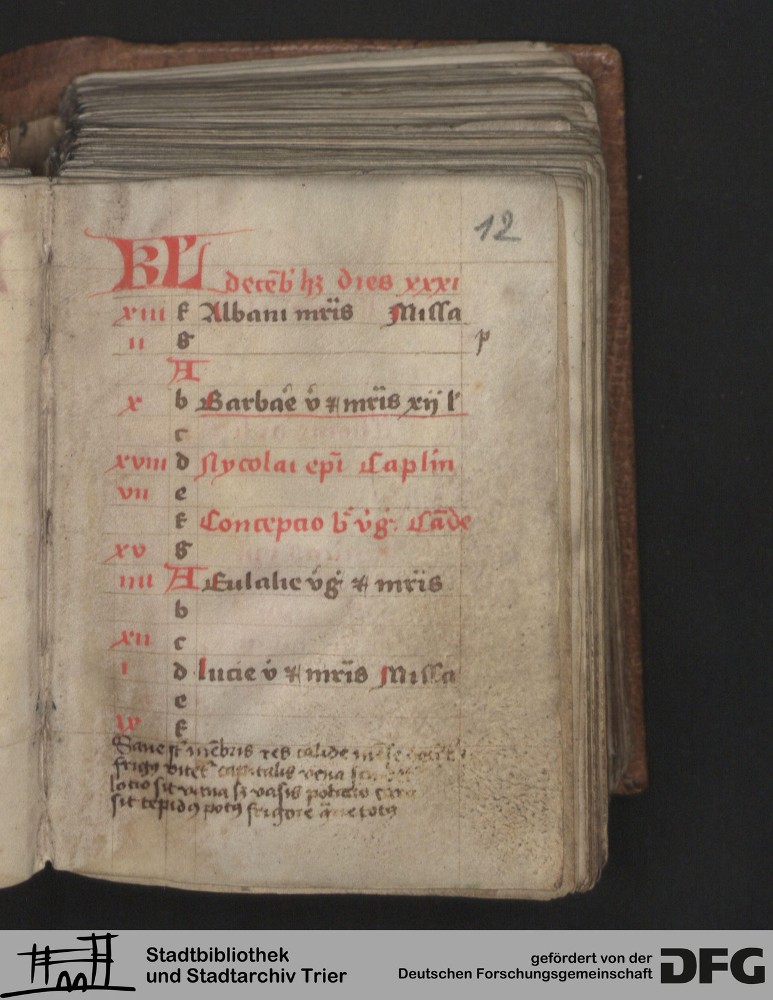 12
KL decēb' hz dies xxxi
xiii f Albani mr̄is Missa
ii g p
A
x b Barbae v̄ & mr̄is xij l'
c
xviii d Nycolai epī Caplin
vii e
f Concepcio b' vḡ. Cāde
xv g
iiii A Eulalie vḡ & mr̄is
b
xii c
i d lucie v̄ & mr̄is Missa
e
f
Sane st mēbris res calide
frigus vitet capitalis vena
lotio sit vana sz vasis potatio cara
sit tepidus potus frigore
Stadtbibliothek
und Stadtarchiv Trier
gefördert von der
Deutschen Forschungsgemeinschaft DFG